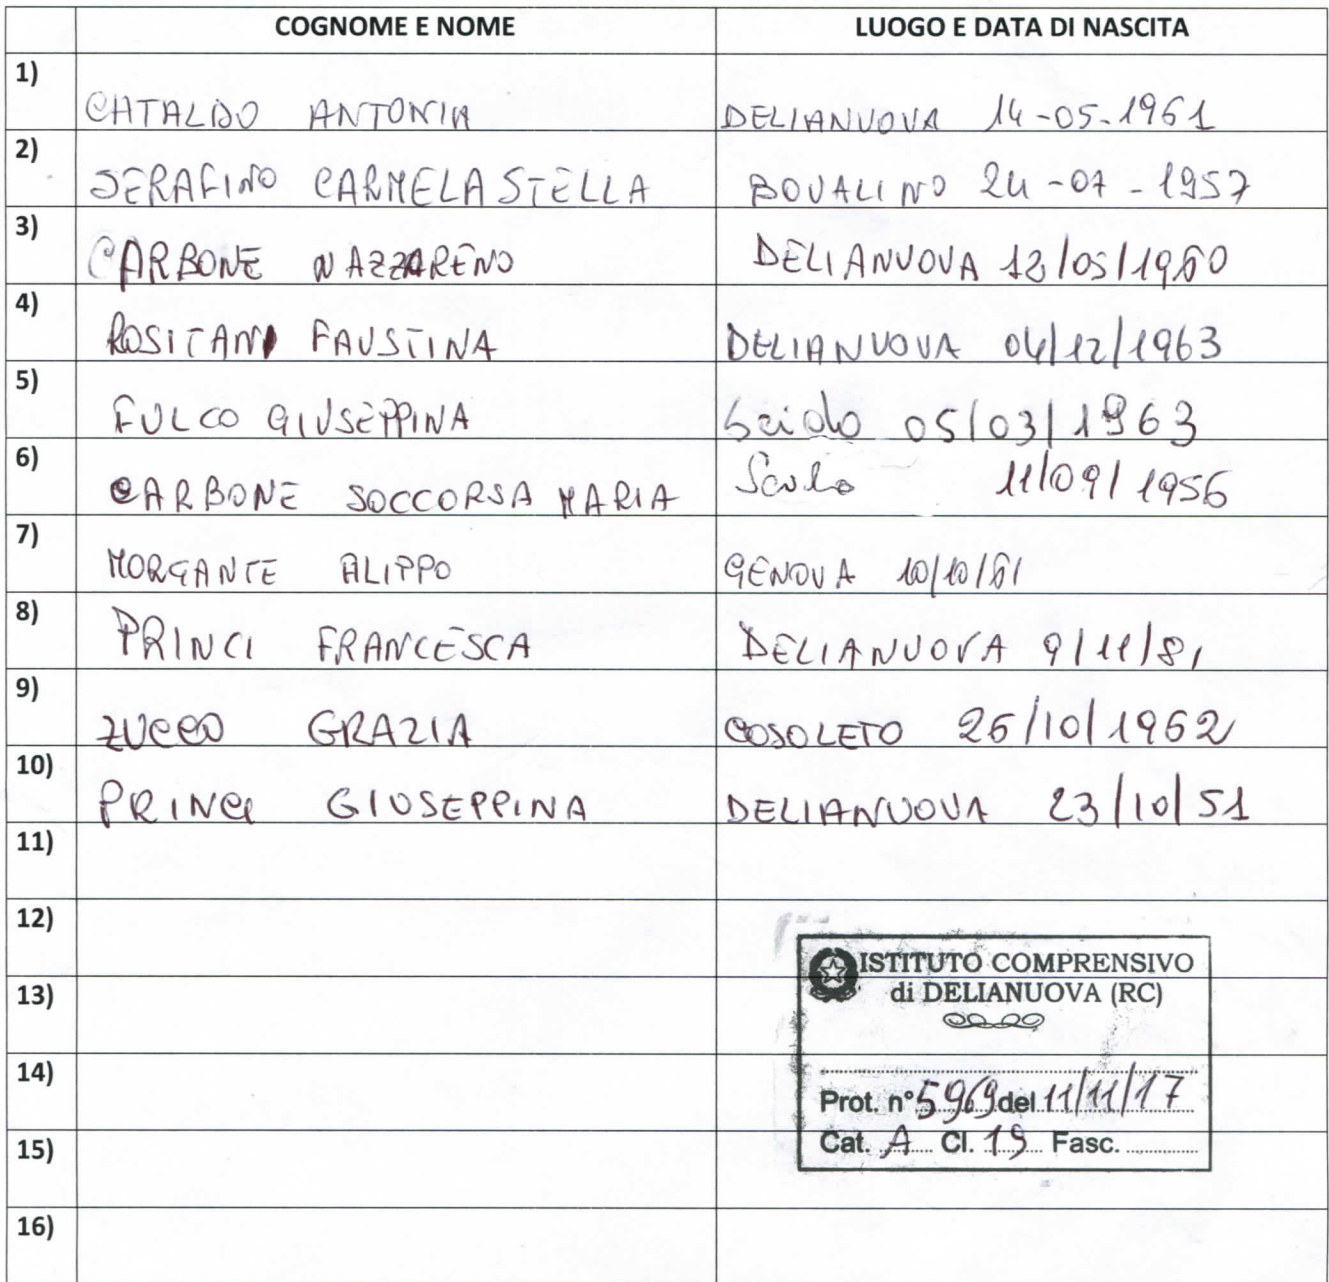 COGNOME E NOME LUOGO E DATA DI NASCITA
1) CATALDO ANTONIA DELIANUOVA 14-05-1961
2) SERAFINO CARMELA STELLA BOVALINO 24-07-1957
3) CARBONE NAZZARENO DELIANUOVA 12/05/1960
4) ROSITANI FAUSTINA DELIANUOVA 04/12/1963
5) FULCO GIUSEPPINA Scido 05/03/1963
6) CARBONE SOCCORSA MARIA 11/09/1956
7) MORGANTE ALIPPO GENOVA 10/10/61
8) PRINCI FRANCESCA DELIANUOVA 9/11/81
9) ZUCCO GRAZIA COSOLETO 26/10/1962
10) PRINCI GIUSEPPINA DELIANUOVA 23/10/51
11)
12)
ISTITUTO COMPRENSIVO
13) di DELIANUOVA (RC)
14)
Prot. n° 5969 del 11/11/17
15) Cat. A Cl. 19 Fasc.
16)